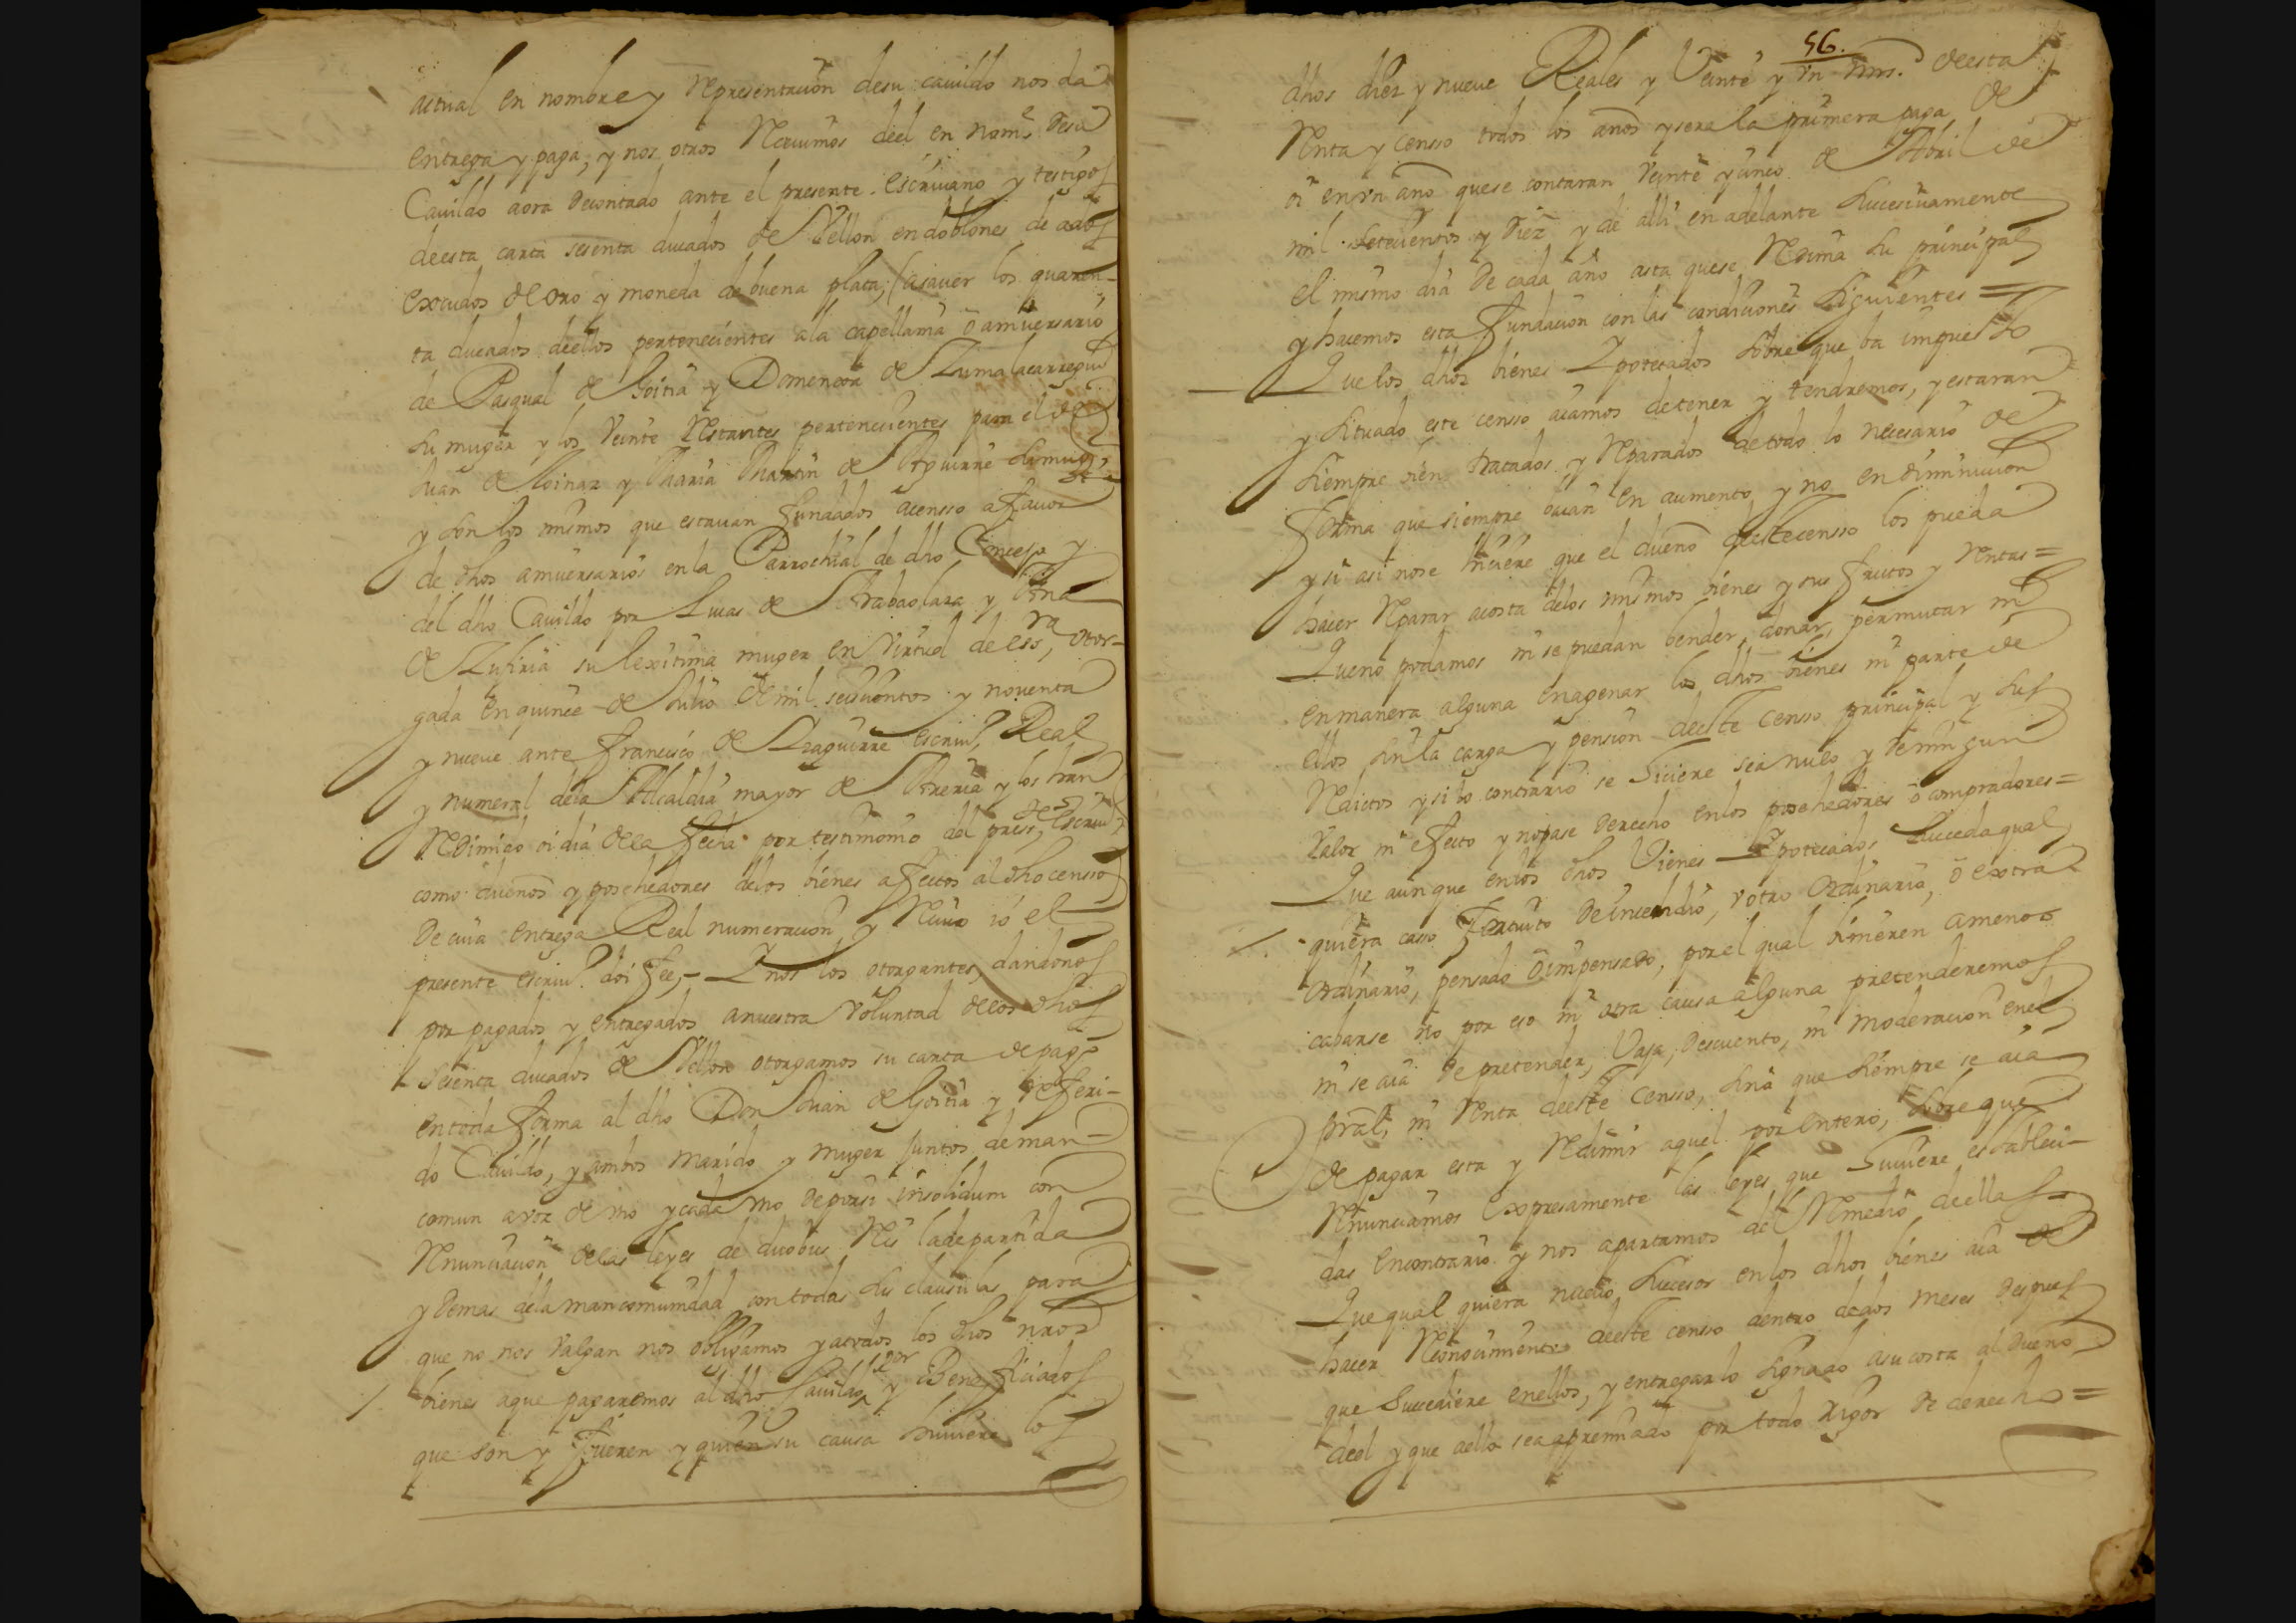 actual en nombre y representacion de su cavildo nos da
entrega y paga, y nos otros Recivimos deel en nome. desu
Cavildo aora decontado ante el presente escrivano y testigos
de esta carta sesenta ducados de Vellon en doblones de ados
escudos de oro y moneda de buena plata, (asaver los quaren-
ta ducados de ellos pertenecientes ala capellania ô aniversario
de Pasqual de Goitia y Domenxa de Zumalacarregui
su muger y los Veinte Restantes pertenecientes para el de
Juan de Loinaz y Maria Martin de Aguirre su mugr.
y son los mismos que estavan fundados acensso afavor
de dhos aniversarios en la Parrochial de dho Concejo y
del dho Cavildo por Lucas de y
de su lexitima muger en virtud de essra, otor-
gada en quince de Julio de mil seiscientos y noventa
y nueve ante Francisco de escrivo. Real
y numeral dela Alcaldia mayor de Areria y los han
Redimido oi dia de la fecha por testimonio del preste. escrivo.
como dueños y poshedores delos bienes afectos al dho censso
de cuia entrega Real numeracion y Recivo io el
presente escrivo. doi fee,- Y nos los otorgantes, dandonos
por pagados y entregados anuestra voluntad de los dhos
sesenta ducados de Vellon otorgamos su carta de pago
en toda forma al dho Don Juan de Goitia y referi-
do Cavildo, y ambos marido y muger juntos de man-
comun avoz de uno y cada uno deporsi insolidum con
Renunciacion de las leyes de duobus Res la departida
y demas dela mancomunidad con todas sus clausulas para
que no nos valgan nos obligamos y atodos los dhos nros
bienes aque pagaremos al dho Cavildo, por y Beneficiados
que son y fueren y quien su causa huviere los
56.
dhos diez y nueve Reales y Veinte y un mrs. de esta
Renta y censso todos los años y sera la primera paga de
oi en un año quese contaran veinte y cinco de Abril de
mil setecientos y diez y de alli en adelante sucesivamente
el mismo dia de cada año asta quese Redima su principal
y hacemos esta fundacion con las condiciones siguientes =
Que los dhos bienes Ypotecados sobre que ba impuesto
y situado este censso aiamos detener y tendremos, y estaran
siempre bien tratados y Reparados de todo lo necesario de
forma que siempre baian en aumento y no en diminucion
y si asi nose hiciere que el dueño de este censso los pueda
hacer Reparar acosta delos mismos bienes y sus frutos y rentas =
Que no podamos ni se puedan bender, donar, permutar ni
en manera alguna enagenar los dhos bienes ni parte de
ellos sin la carga y pension de este Censso principal y sus
Reditos y si lo contrario se hiciere sea nulo y de ningun
valor ni efecto y nopase derecho en los poshedores ô compradores =
Que aunque en los dhos Vienes Ypotecados suceda qual
quiera casso fortuito de incendio, v otro Ordinario, ô extra
Ordinario, pensado ô impensado, por el qual binieren amenos
cabarse no por eso ni otra causa alguna pretenderemos
ni se aia de pretender, Vaja, descuento, ni moderacion enel
pral, ni Renta de este Censso, sino que siempre se aia
de pagar esta y Redimir aquel por entero, sobre que
Renunciamos expresamente las leyes que huviere estableci-
das en contrario y nos apartamos del Remedio de ellas =
Que qual quiera nuebo sucesor en los dhos bienes aia de
hacer Reconocimiento de este censo dentro de dos meses despues
que succediere en ellos, y entregarlo signado asu costa al dueño
deel y que aello sea apremiado por todo rigor de derecho =